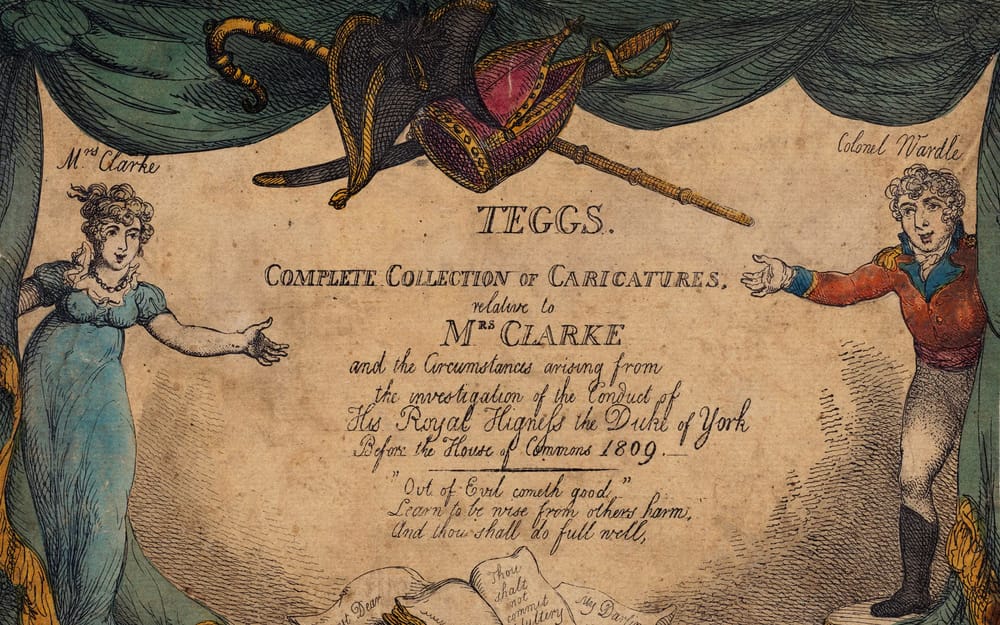 Mrs Clarke
Colonel Wardle
TEGGS.
COMPLETE COLLECTION OF CARICATURES,
relative to
MRS CLARKE
and the Circumstances arising from
the investigation of the Conduct of
His Royal Higneſs the Duke of York
Before the House of Commons 1809.
"Out of Evil cometh good"
Learn to be wise from others harm,
And thou shall do full well,
Dear
Thou
shalt
not
commit
My Darlin